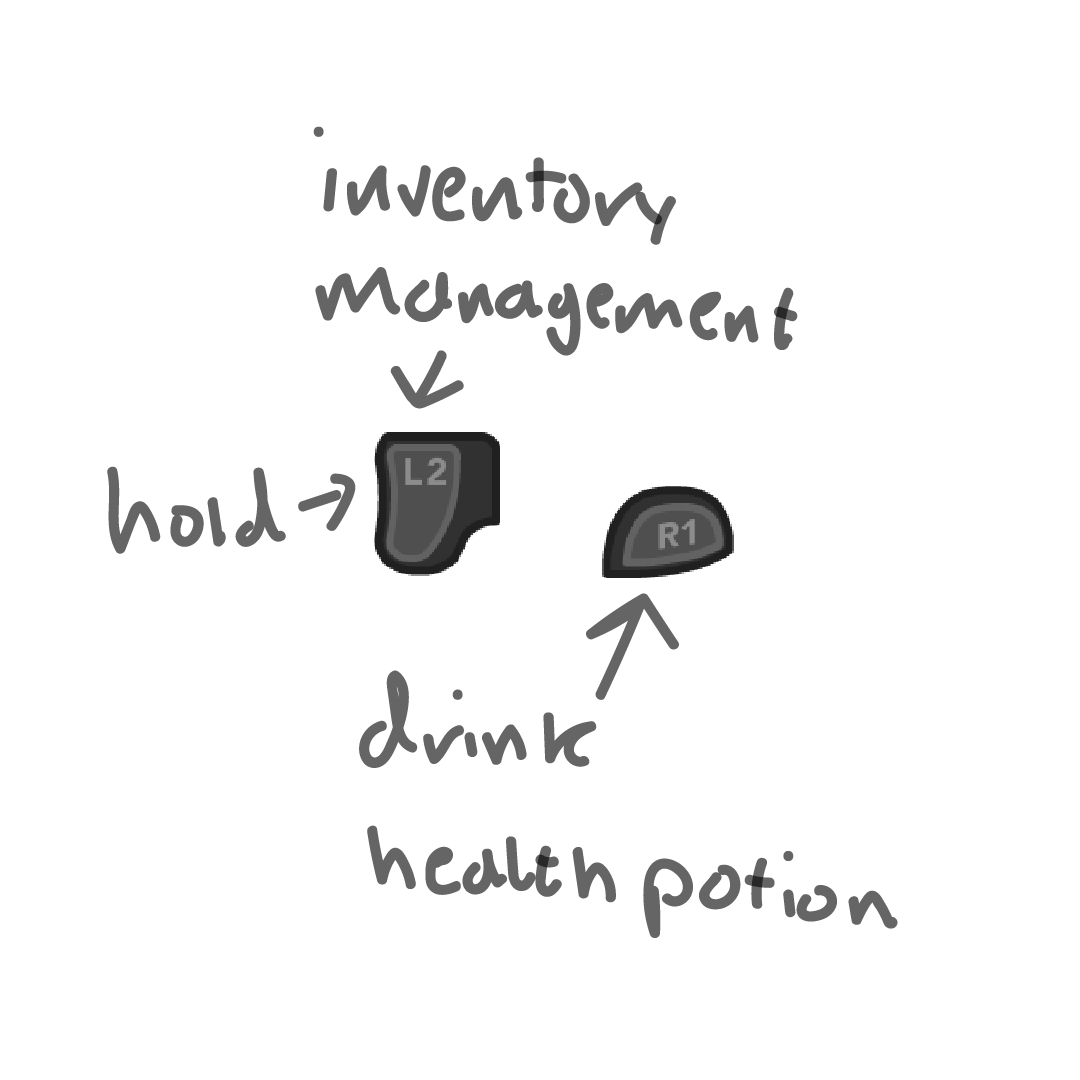 inventory
management
hold
L2
R1
drink
health potion